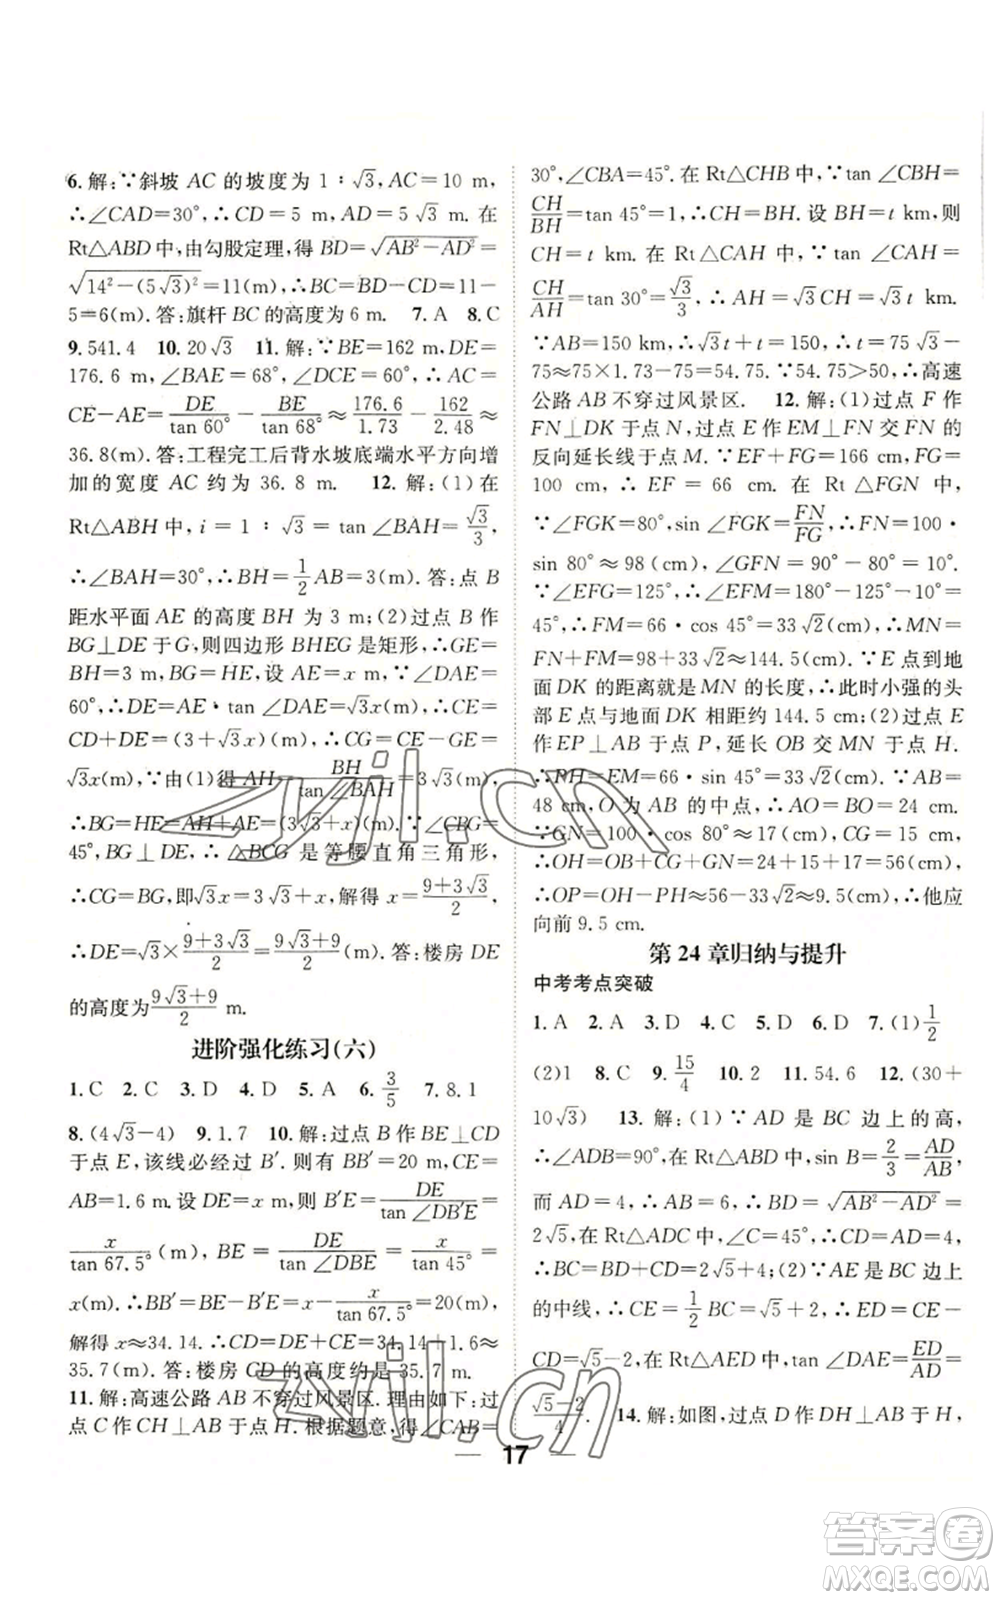 6. 解:∵斜坡 AC 的坡度为 1∶√3,AC=10 m,
∴∠CAD=30°,∴CD=5 m,AD=5√3 m. 在
Rt△ABD 中,由勾股定理,得 BD=√(AB²−AD²)=
√(14²−(5√3)²)=11(m),∴BC=BD−CD=11−
5=6(m). 答:旗杆 BC 的高度为 6 m. 7. A 8. C
9. 541.4 10. 20√3 11. 解:∵BE=162 m,DE=
176.6 m,∠BAE=68°,∠DCE=60°,∴AC=
CE−AE=DE/tan 60°−BE/tan 68°≈176.6/1.73−162/2.48≈
36.8(m). 答:工程完工后背水坡底端水平方向增
加的宽度 AC 约为 36.8 m. 12. 解:(1)在
Rt△ABH 中,i=1∶√3=tan ∠BAH=√3/3,
∴∠BAH=30°,∴BH=1/2AB=3(m). 答:点 B
距水平面 AE 的高度 BH 为 3 m;(2)过点 B 作
BG⊥DE 于 G,则四边形 BHEG 是矩形,∴GE=
BH=3 m,BG=HE,设 AE=x m,∵∠DAE=
60°,∴DE=AE·tan ∠DAE=√3x(m),∴CE=
CD+DE=(√3x)(m),∴CG=CE−GE=
√3x(m),∵由(1)得 AH=BH/tan ∠BAH=3√3(m),
∴BG=HE=AH+AE=(3√3+x)(m),∵∠CBG=
45°,BG⊥DE,∴△BCG 是等腰直角三角形,
∴CG=BG,即√3x=3√3+x. 解得 x=(9+3√3)/2,
∴DE=√3×(9+3√3)/2=(9√3+9)/2(m). 答:楼房 DE
的高度为(9√3+9)/2 m.
进阶强化练习(六)
1. C 2. C 3. D 4. D 5. A 6. 3/5 7. 8.1
8. (4√3−4) 9. 1.7 10. 解:过点 B 作 BE⊥CD
于点 E,该线必经过 B′. 则有 BB′=20 m,CE=
AB=1.6 m. 设 DE=x m,则 B′E=DE/tan ∠DB′E=
x/tan 67.5°(m),BE=DE/tan ∠DBE=x/tan 45°=
x(m). ∴BB′=BE−B′E=x−x/tan 67.5°=20(m),
解得 x≈34.14. ∴CD=DE+CE=34.14+1.6≈
35.7(m). 答:楼房 CD 的高度约为 35.7 m.
11. 解:高速公路 AB 不穿过风景区. 理由如下:过
点 C 作 CH⊥AB 于点 H. 根据题意,得∠CAB=
30°,∠CBA=45°. 在 Rt△CHB 中,∵tan ∠CBH=
CH/BH=tan 45°=1,∴CH=BH. 设 BH=t km,则
CH=t km. 在 Rt△CAH 中,∵tan ∠CAH=
CH/AH=tan 30°=√3/3,∴AH=√3CH=√3t km.
∵AB=150 km,∴√3t+t=150,∴t=75√3−
75≈75×1.73−75=54.75. ∵54.75>50,∴高速
公路 AB 不穿过风景区. 12. 解:(1)过点 F 作
FN⊥DK 于点 N,过点 E 作 EM⊥FN 交 FN 的
反向延长线于点 M. ∵EF+FG=166 cm,FG=
100 cm,∴EF=66 cm. 在 Rt△FGN 中,
∵∠FGK=80°,sin ∠FGK=FN/FG,∴FN=100·
sin 80°≈98(cm),∠GFN=90°−80°=10°.
∵∠EFG=125°,∴∠EFM=180°−125°−10°=
45°,∴FM=66·cos 45°=33√2(cm),∴MN=
FN+FM=98+33√2≈144.5(cm). ∵E 点到地
面 DK 的距离就是 MN 的长度,∴此时小强的头
部 E 点与地面 DK 相距约 144.5 cm;(2)过点 E
作 EP⊥AB 于点 P,延长 OB 交 MN 于点 H.
∴PH=EM=66·sin 45°=33√2(cm). ∵AB=
48 cm,O 为 AB 的中点,∴AO=BO=24 cm.
∵GN=100·cos 80°≈17(cm),CG=15 cm,
∴OH=OB+CG+GN=24+15+17=56(cm),
∴OP=OH−PH≈56−33√2≈9.5(cm),∴他应
向前 9.5 cm.
第 24 章归纳与提升
中考考点突破
1. A 2. A 3. D 4. C 5. D 6. D 7. (1)1/2
(2)1 8. C 9. 15/4 10. 2 11. 54.6 12. (30+
10√3) 13. 解:(1)∵AD 是 BC 边上的高,
∴∠ADB=90°,在 Rt△ABD 中,sin B=2/3=AD/AB,
而 AD=4,∴AB=6,∴BD=√(AB²−AD²)=
2√5,在 Rt△ADC 中,∵∠C=45°,∴CD=AD=4,
∴BC=BD+CD=2√5+4;(2)∵AE 是 BC 边上
的中线,∴CE=1/2BC=√5+2,∴ED=CE−
CD=√5−2,在 Rt△AED 中,tan ∠DAE=ED/AD=
(√5−2)/4. 14. 解:如图,过点 D 作 DH⊥AB 于 H,
17
zyjl.cn
zyjl.cn
答案圈
MXQE.COM